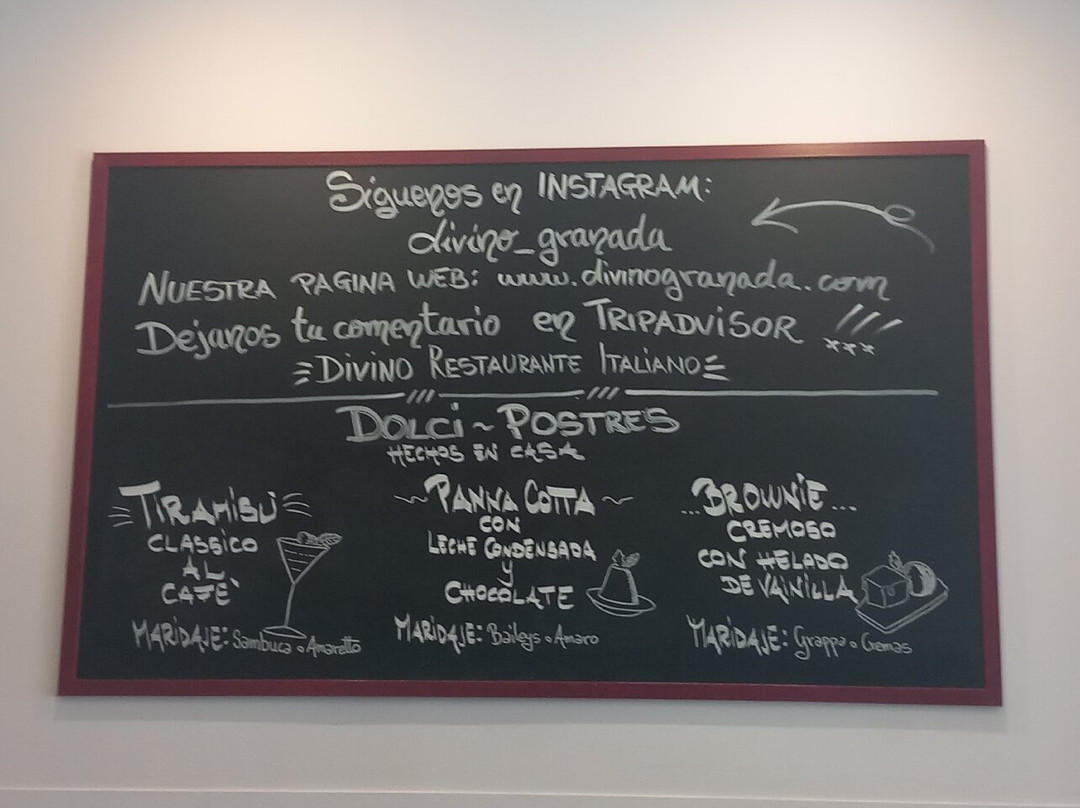 Siguenos en INSTAGRAM:
divino_granada
NUESTRA PAGINA WEB: www.divinogranada.com
Dejanos tu comentario en TRIPADVISOR
DIVINO RESTAURANTE ITALIANO
DOLCI ~ POSTRES
HECHOS EN CASA
TIRAMISÙ
CLASSICO
AL
CAFÈ
MARIDAJE: Sambuca o Amaretto
~ PANNA COTTA ~
CON
LECHE CONDENSADA
y
CHOCOLATE
MARIDAJE: Baileys o Amaro
...BROWNIE...
CREMOSO
CON HELADO
DE VAINILLA
MARIDAJE: Grappa o Cremas